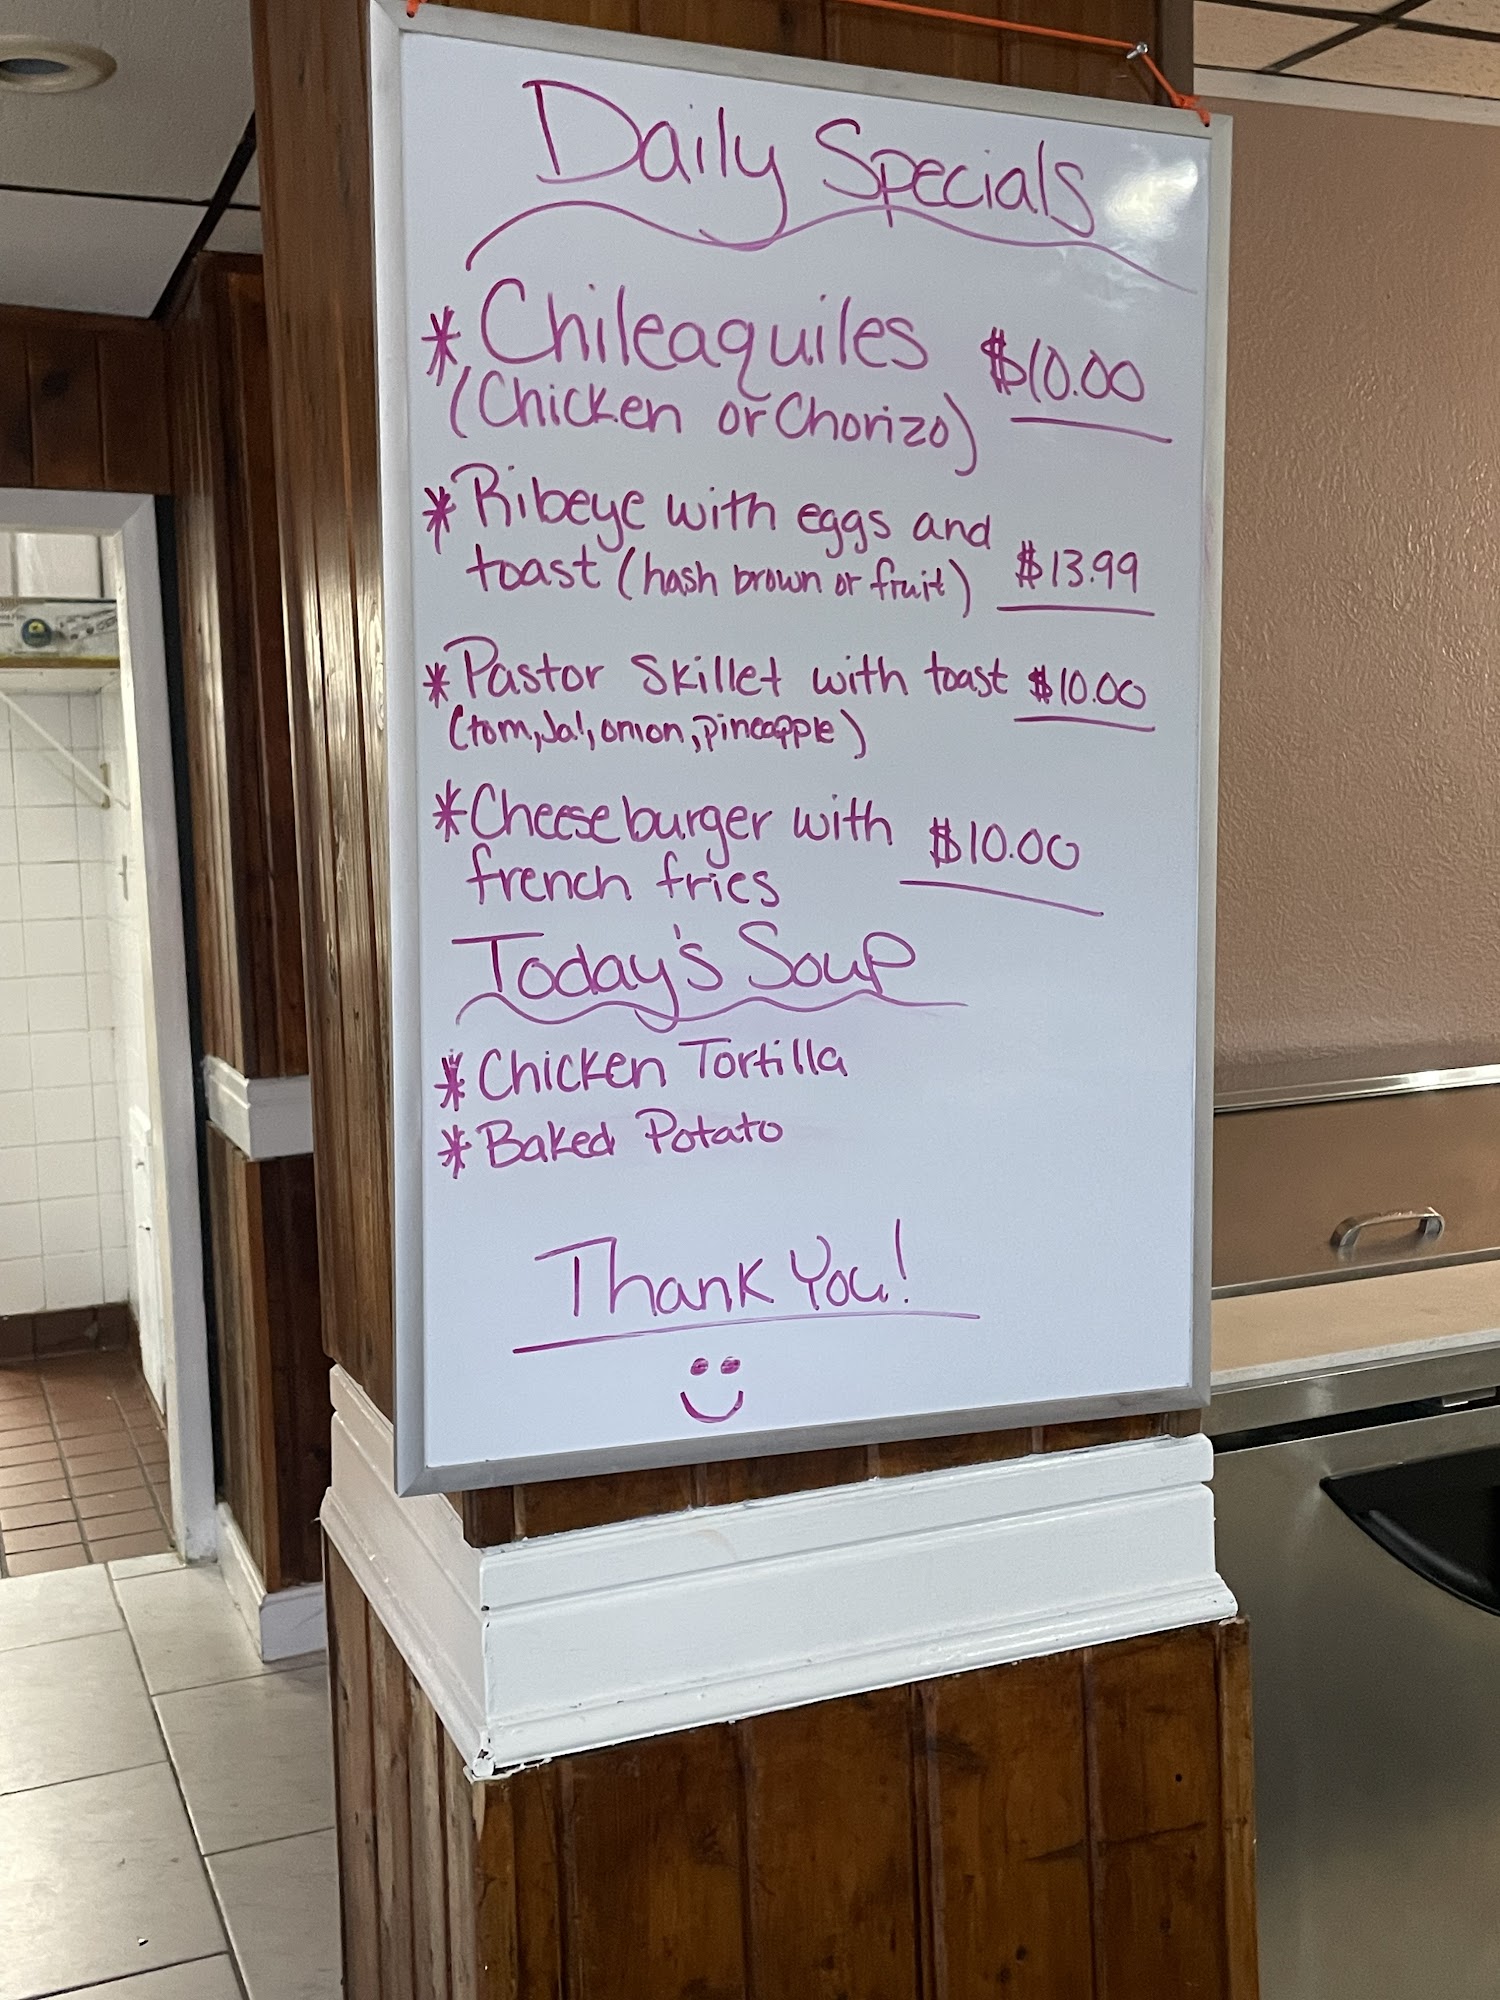 Daily Specials
* Chileaquiles $10.00
(Chicken or Chorizo)
* Ribeye with eggs and
toast (hash brown or fruit) $13.99
* Pastor Skillet with toast $10.00
(tom, Jal, onion, pineapple)
* Cheese burger with $10.00
french fries
Today's Soup
* Chicken Tortilla
* Baked Potato
Thank You!